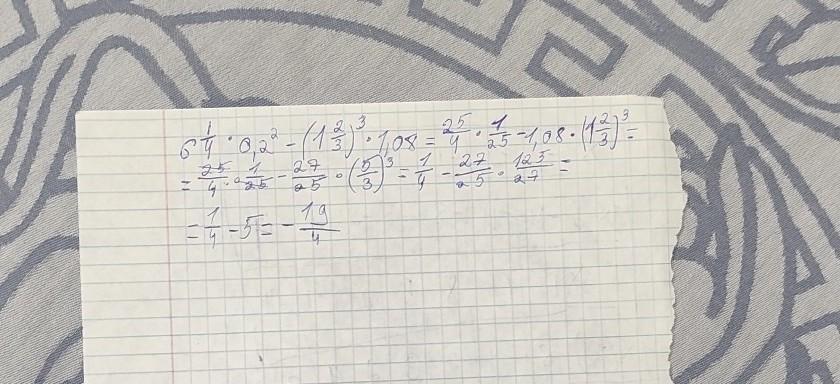 6 1/4 · 0,2² - (1 2/3)³ · 1,08 = 25/4 · 1/25 - 1,08 · (1 2/3)³ =
= 25/4 · 1/25 - 27/25 · (5/3)³ = 1/4 - 27/25 · 125/27 =
= 1/4 - 5 = - 19/4